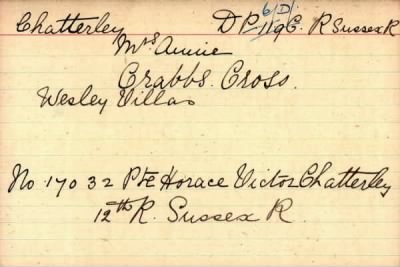 Chatterley D P 6/D/1196. R Sussex R
Mrs Annie
Crabbs Cross.
Wesley Villas
No 17032 Pte Horace Victor Chatterley
12th R. Sussex R.